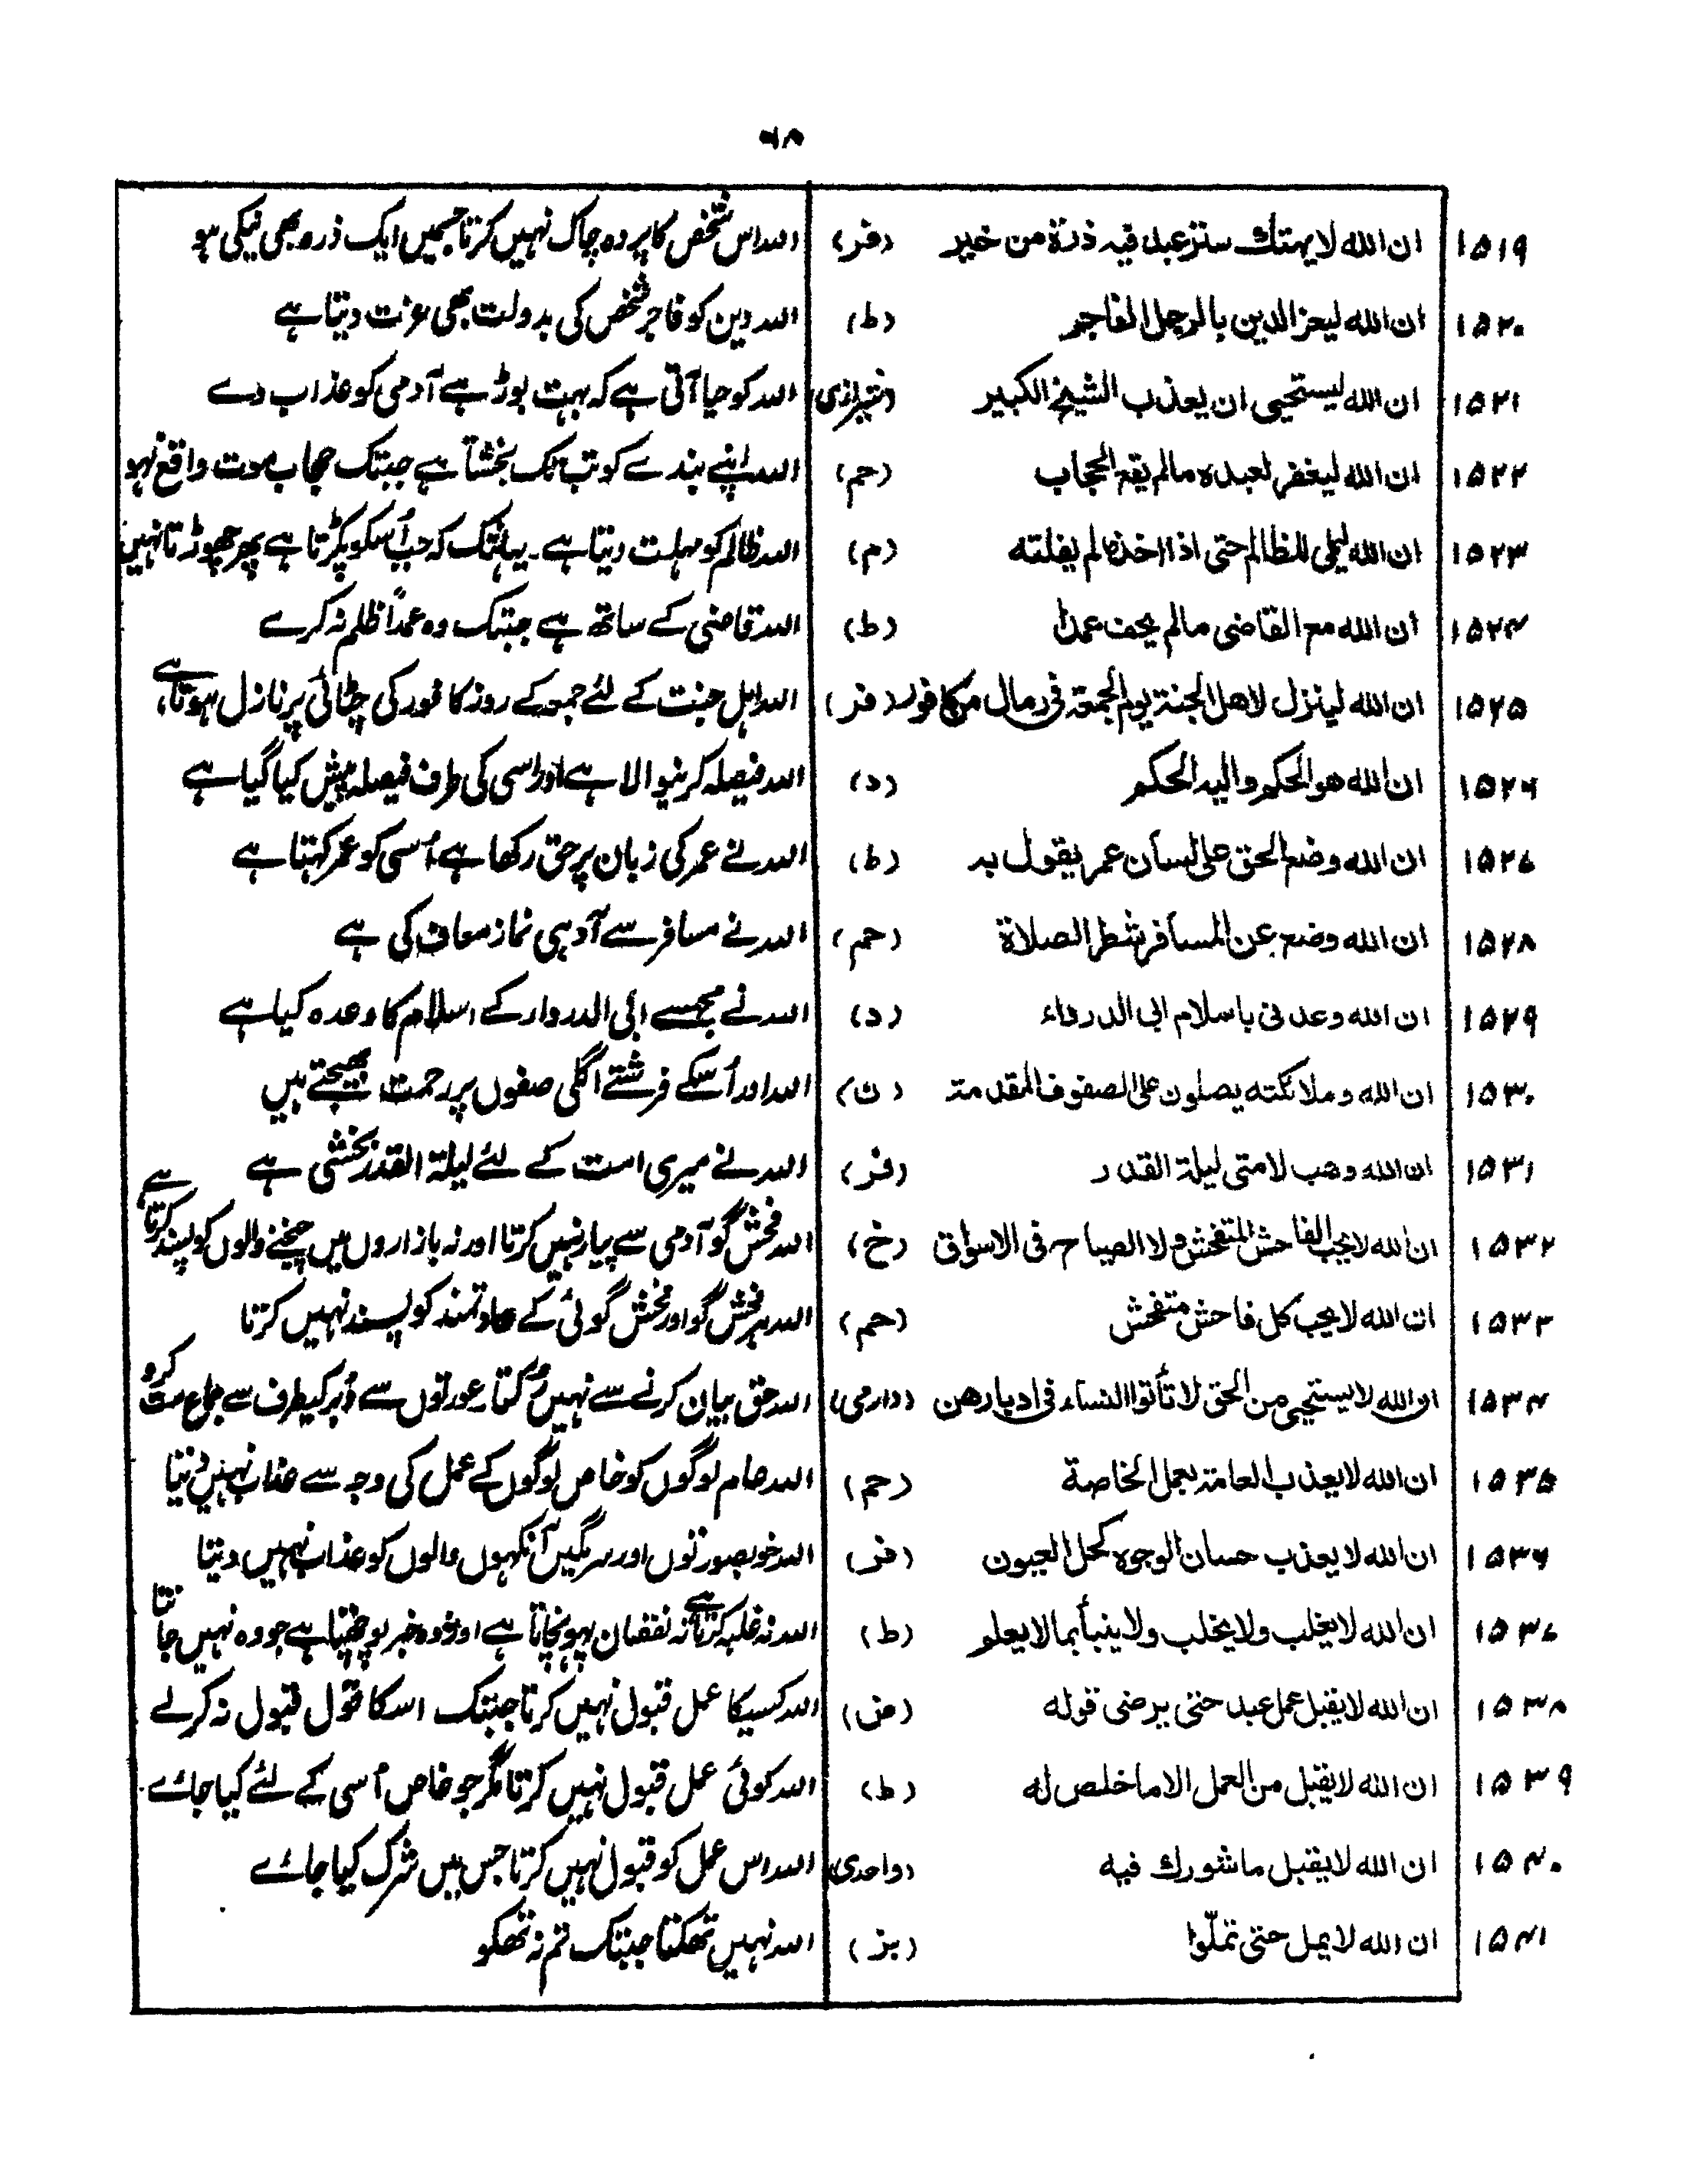 ۶۸
۱۵۱۹ ان الله لا يهتك ستر عبد فيه ذرة من خير (فر) اللہ اس شخص کا پردہ چاک نہیں کرتا جسمیں ایک ذرہ بھی نیکی ہو
۱۵۲۰ ان الله ليعز الدين بالرجل الفاجر (ط) اللہ دین کو فاجر شخص کی بدولت بھی عزت دیتا ہے
۱۵۲۱ ان الله ليستحيى ان يعذب الشيخ الكبير (شیرازی) اللہ کو حیا آتی ہے کہ بہت بوڑہے آدمی کو عذاب دے
۱۵۲۲ ان الله ليغفر لعبده مالم يقع الحجاب (حم) اللہ اپنے بندے کو تب تک بخشتا ہے جبتک حجاب موت واقع نہو
۱۵۲۳ ان الله ليملى للظالم حتى اذا اخذه لم يفلته (م) اللہ ظالم کو مہلت دیتا ہے۔ یہانتک کہ جب اُسکو پکڑتا ہے پھر چھوڑتا نہیں
۱۵۲۴ ان الله مع القاضى مالم يحف عمدا (ط) اللہ قاضی کے ساتھ ہے جبتک وہ عمداً ظلم نہ کرے
۱۵۲۵ ان الله لينزل لاهل الجنة يوم الجمعة فى رمال من كافور (فر) اللہ اہل جنت کے لئے جمعہ کے روز کافور کی چٹائی پر نازل ہوتا ہے
۱۵۲۶ ان الله هو الحكم واليه الحكم (د) اللہ فیصلہ کرنیوالا ہے اور اسی کی طرف فیصلہ پیش کیا گیا ہے
۱۵۲۷ ان الله وضع الحق على لسان عمر يقول به (ط) اللہ نے عمر کی زبان پر حق رکھا ہے اُسی کو عمر کہتا ہے
۱۵۲۸ ان الله وضع عن المسافر شطر الصلاة (حم) اللہ نے مسافر سے آدہی نماز معاف کی ہے
۱۵۲۹ ان الله وعدنى باسلام ابى الدرداء (د) اللہ نے مجہسے ابی الدرداء کے اسلام کا وعدہ کیا ہے
۱۵۳۰ ان الله وملائكته يصلون على الصفوف المقدمة (ن) اللہ اور اُسکے فرشتے اگلی صفوں پر رحمت بھیجتے ہیں
۱۵۳۱ ان الله وهب لامتى ليلة القدر (فر) اللہ نے میری امت کے لئے لیلۃ القدر بخشی ہے
۱۵۳۲ ان الله لا يحب الفاحش المتفحش ولا الصياح فى الاسواق (خ) اللہ فحش گو آدمی سے پیار نہیں کرتا اور نہ بازاروں میں چیخنے والوں کو پسند کرتا ہے
۱۵۳۳ ان الله لا يحب كل فاحش متفحش (حم) اللہ ہر فحش گو اور فحش گوئی کے عادتمند کو پسند نہیں کرتا
۱۵۳۴ ان الله لا يستحيى من الحق لا تأتوا النساء فى ادبارهن (دارمی) اللہ حق بیان کرنے سے نہیں رُکتا عورتوں سے دُبر کیطرف سے جماع مت کرو
۱۵۳۵ ان الله لا يعذب العامة بعمل الخاصة (حم) اللہ عام لوگوں کو خاص لوگوں کے عمل کی وجہ سے عذاب نہیں دیتا
۱۵۳۶ ان الله لا يعذب حسان الوجوه كحل العيون (فر) اللہ خوبصورتوں اور سرمگیں آنکہوں والوں کو عذاب نہیں دیتا
۱۵۳۷ ان الله لا يغلب ولا يخلب ولا ينبأ بما لا يعلم (ط) اللہ نہ غلبہ کرتا ہے نہ نقصان پہونچاتا ہے اور نہ وہ خبر پوچھتا ہے جو وہ نہیں جانتا
۱۵۳۸ ان الله لا يقبل عمل عبد حتى يرضى قوله (ض) اللہ کسیکا عمل قبول نہیں کرتا جبتک اسکا قول قبول نہ کرلے
۱۵۳۹ ان الله لا يقبل من العمل الا ما خلص له (ط) اللہ کوئی عمل قبول نہیں کرتا مگر جو خاص اُسی کے لئے کیا جاۓ
۱۵۴۰ ان الله لا يقبل ما شورك فيه (واحدی) اللہ اس عمل کو قبول نہیں کرتا جس میں شرک کیا جاۓ
۱۵۴۱ ان الله لا يمل حتى تملّوا (بز) اللہ نہیں تھکتا جبتک تم نہ تھکو